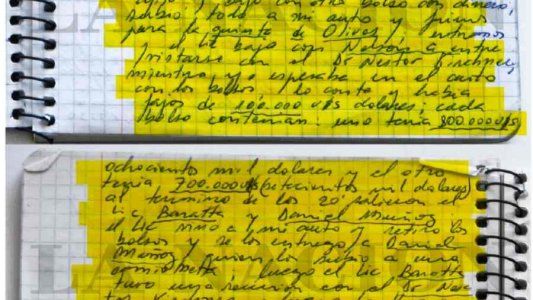 y bajo con otro bolso con dinero,
subio todo a mi auto y fuimos
para la quinta de Olivos y entramos
y el lic bajo con Nelson a entre
vistarse con el Dr Nestor Kirchner,
mientras yo esperaba en el auto
con los bolsos, lo conte y habia
fajos de 100.000 U$S dolares; cada
bolso contenian: uno tenia 800.000U$S
ochocientos mil dolares y el otro
tenia 700.000U$S(setecientos mil dolares)
al termino de los 20' salieron el
lic Baratta y Daniel Muñoz
el lic vino a mi auto y retiro los
bolsos y se los entrego a Daniel
Muñoz, quien los subio a una
camioneta, luego el lic Baratta
tuvo una reunion con el Dr Nes
LA NACION
LA NACION